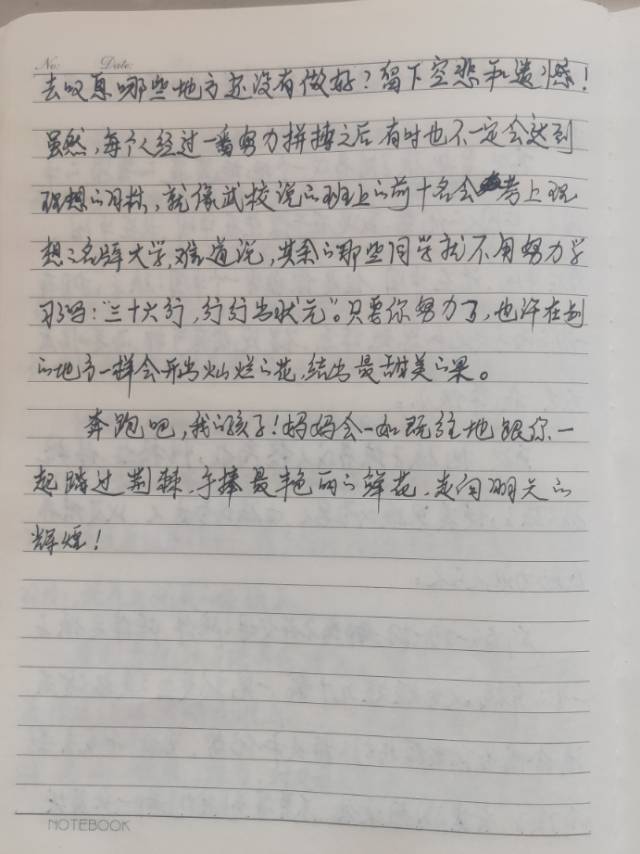 No:        Date:
去叹息哪些地方还没有做好？留下空悲和遗憾！
虽然，每个人经过一番努力拼搏之后，有时也不一定会达到
理想的目标，就像武校说的班上的前十名会考上理
想之名牌大学，难道说，其余的那些同学就不用努力学
习了吗："三十六行，行行出状元"。只要你努力了，也许在别
的地方一样会开出灿烂的花，结出最甜美的果。
奔跑吧，我的孩子！妈妈会一如既往地跟你一
起踏过荆棘，手捧最艳丽的鲜花，走向明天的
辉煌！
NOTEBOOK